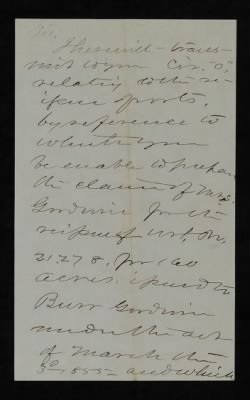 Sir,
I herewith trans-
mit to you Cir. "O",
relating to the re-
issue of
by reference to
which you
be enable to prepare
the claim of Mrs.
Goodwin for the
reissue of Wt. No.
21.278. for 160
acres issued to
Burr Goodwin
under the act
of March the
3d 1855 and which